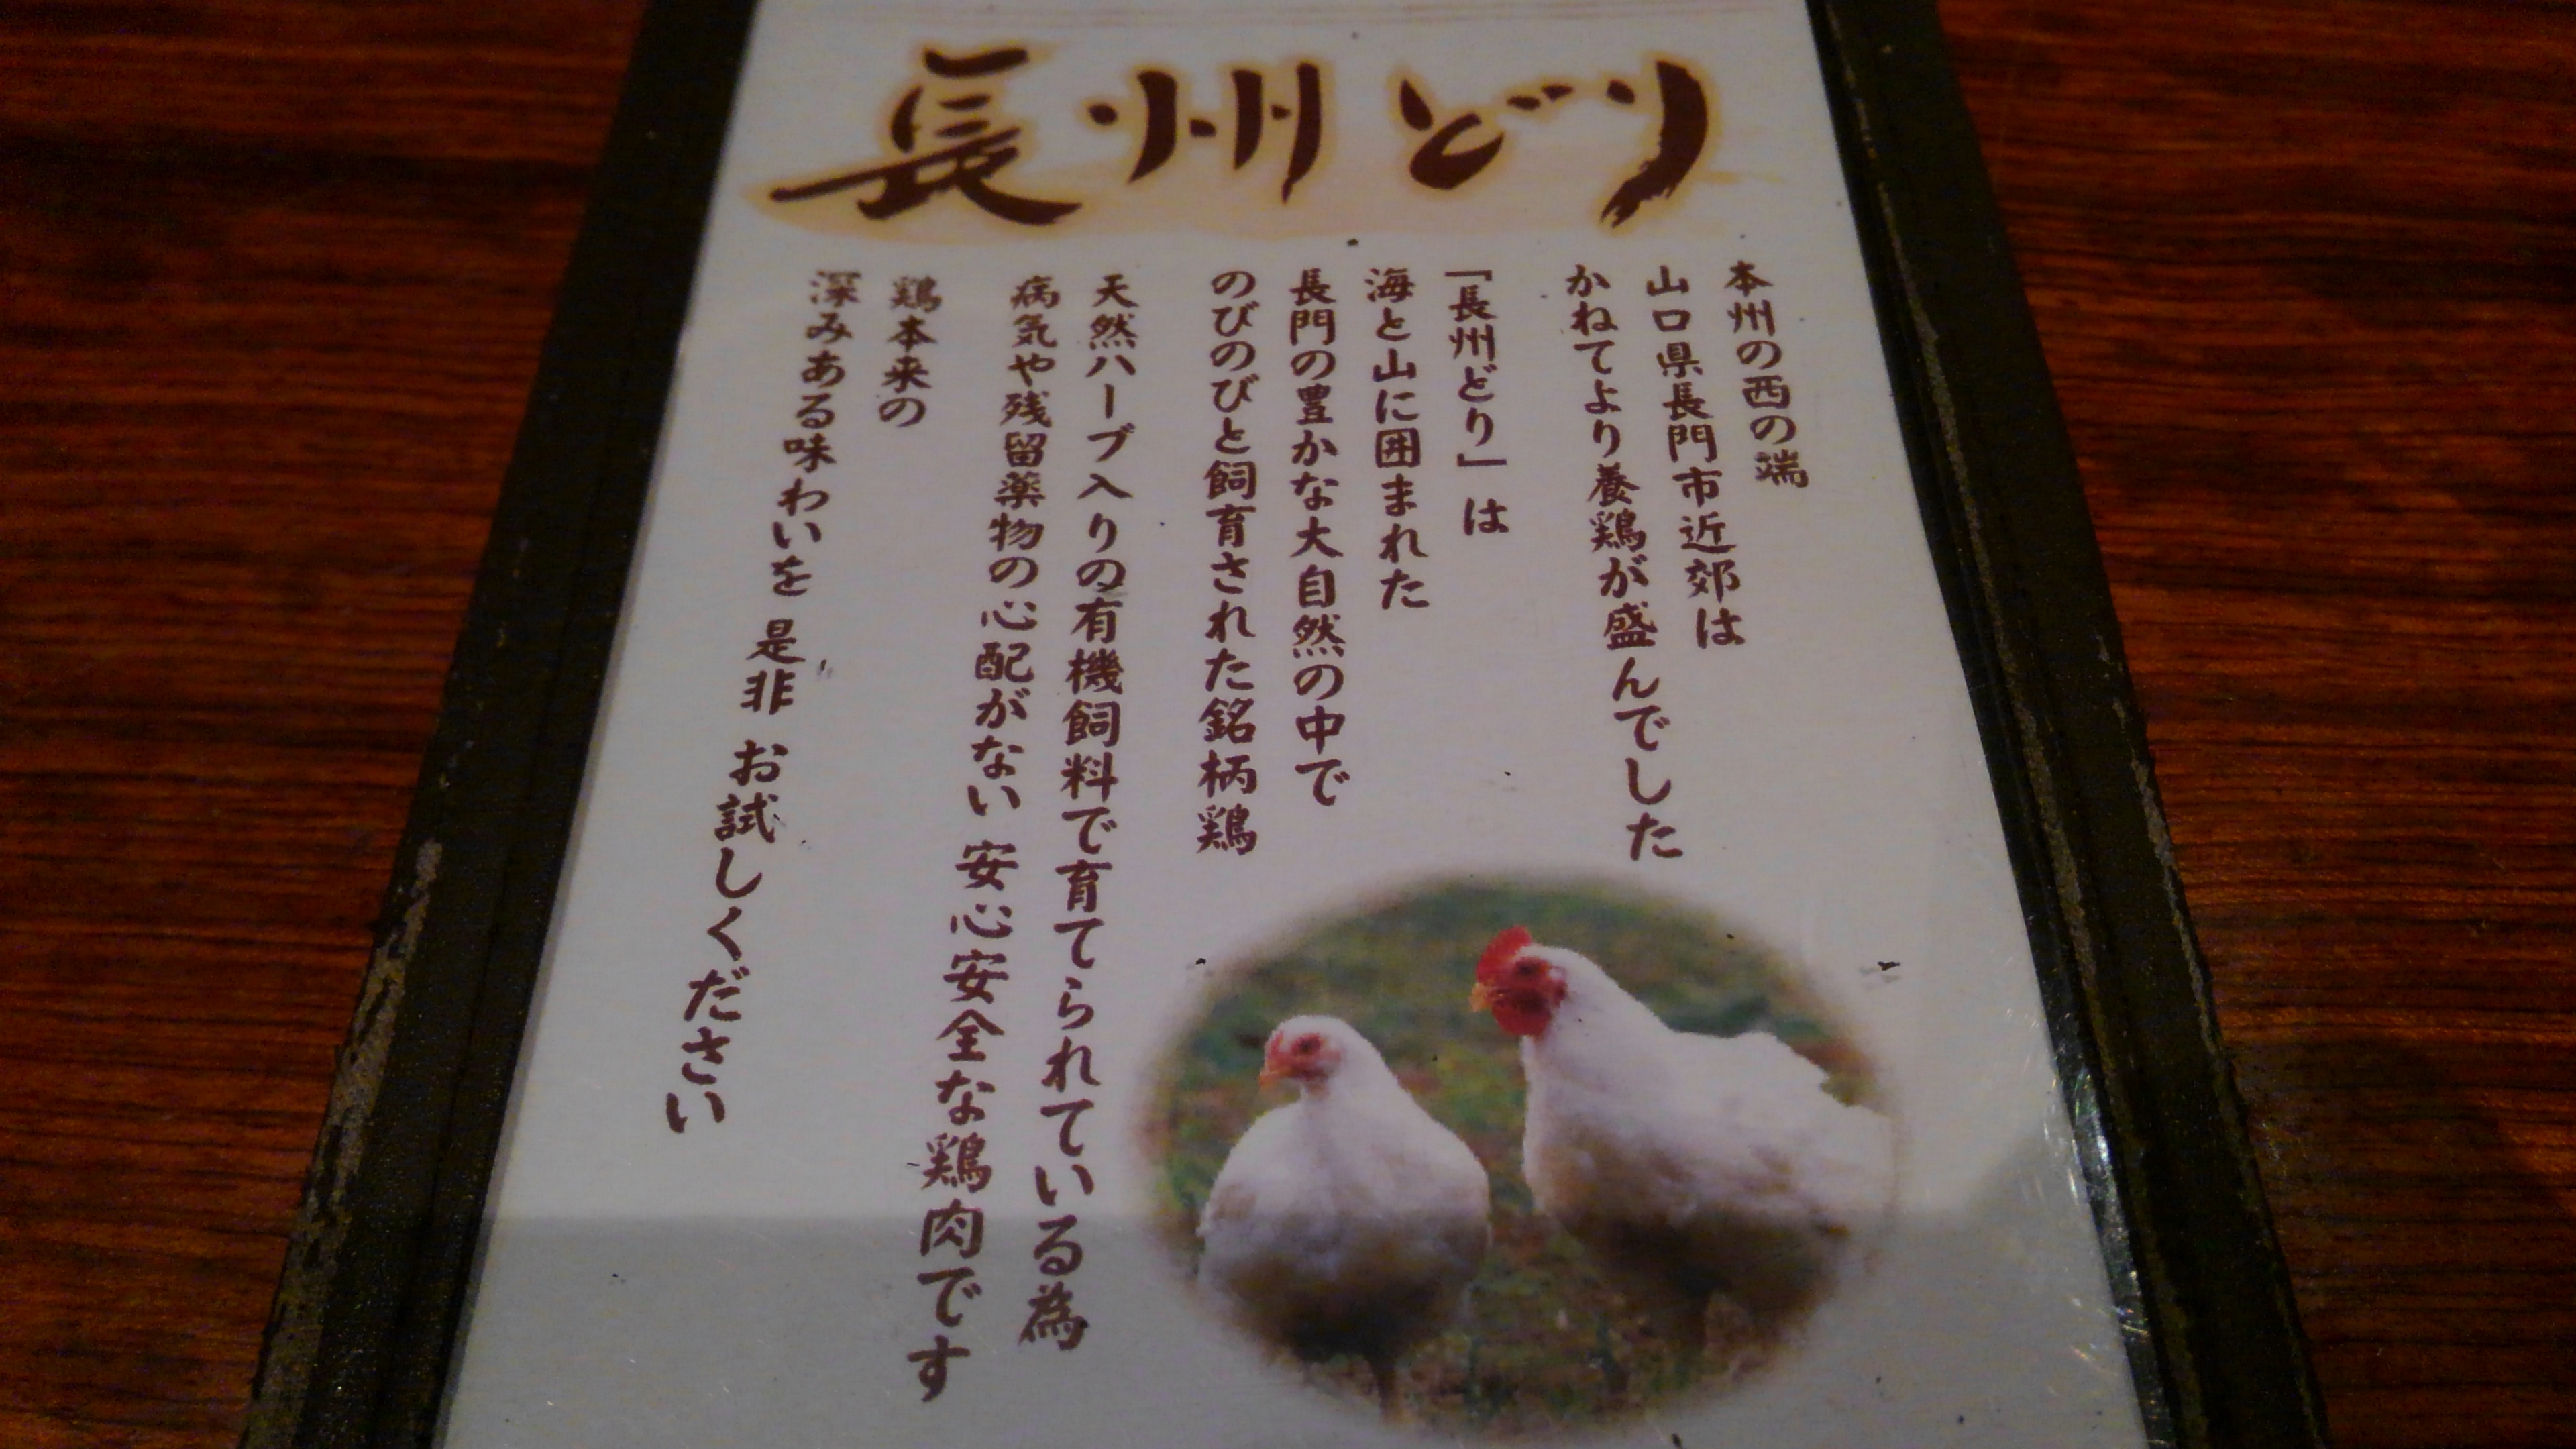 長州どり
本州の西の端
山口県長門市近郊は
かねてより養鶏が盛んでした
「長州どり」は
海と山に囲まれた
長門の豊かな大自然の中で
のびのびと飼育された銘柄鶏
天然ハーブ入りの有機飼料で育てられている為
病気や残留薬物の心配がない 安心安全な鶏肉です
鶏本来の
深みある味わいを 是非 お試しください